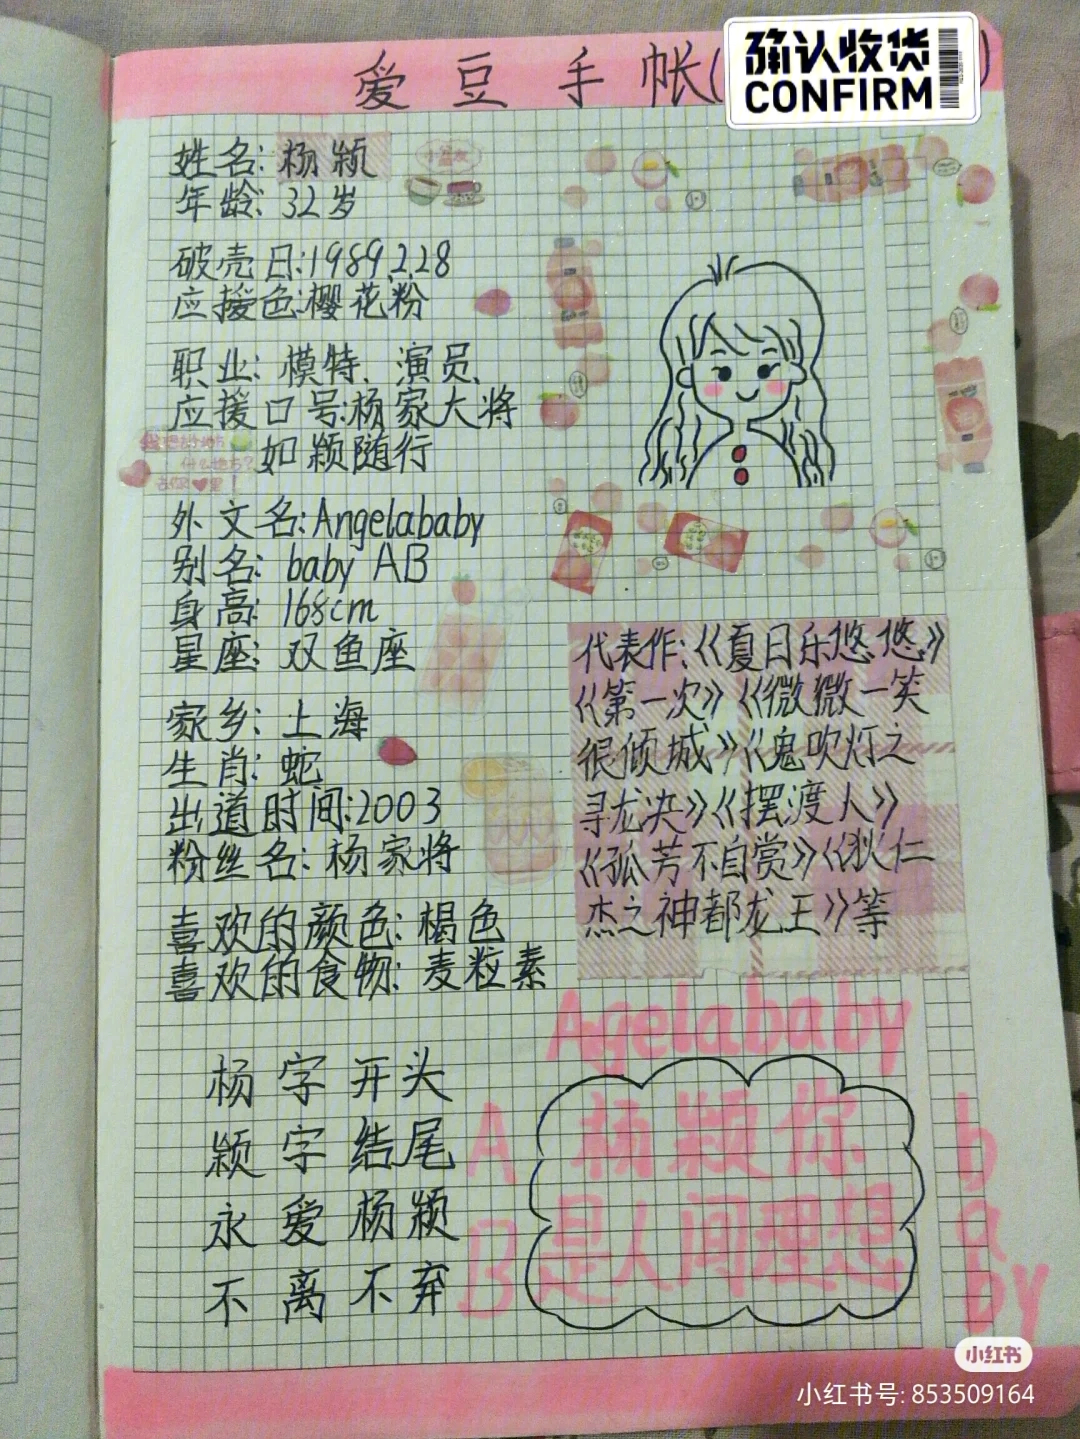 爱豆手帐(
确认收货
CONFIRM
)
姓名:杨颖
年龄:32岁
破壳日:1989.2.28
应援色:樱花粉
职业:模特、演员、
应援口号:杨家大将
如颖随行
外文名:Angelababy
别名:baby AB
身高:168cm
星座:双鱼座
家乡:上海
生肖:蛇
出道时间:2003
粉丝名:杨家将
喜欢的颜色:褐色
喜欢的食物:麦粒素
代表作:《夏日乐悠悠》
《第一次》《微微一笑
很倾城》《鬼吹灯之
寻龙决》《摆渡人》
《孤芳不自赏》《狄仁
杰之神都龙王》等
杨字开头
颖字结尾
永爱杨颖
不离不弃
Agelababy
AB
杨颖你
是人间理想
baby
小红书
小红书号: 853509164